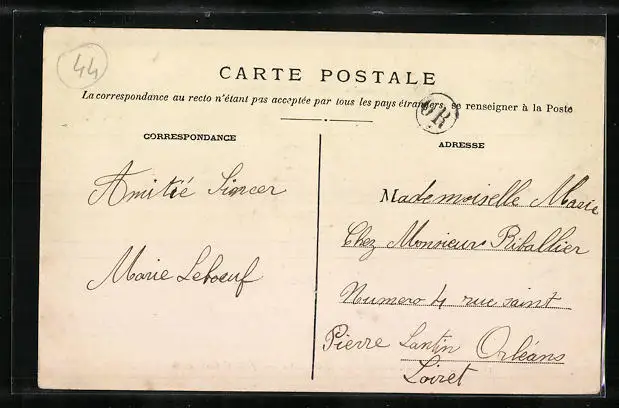 44
CARTE POSTALE
La correspondance au recto n'étant pas acceptée par tous les pays étrangers, se renseigner à la Poste
OR
CORRESPONDANCE
Amitié Sincer
Marie Leboeuf
ADRESSE
Mademoiselle Marie
Chez Monsieur Riballier
Numero 4 rue saint
Pierre Lantin Orléans
Loiret